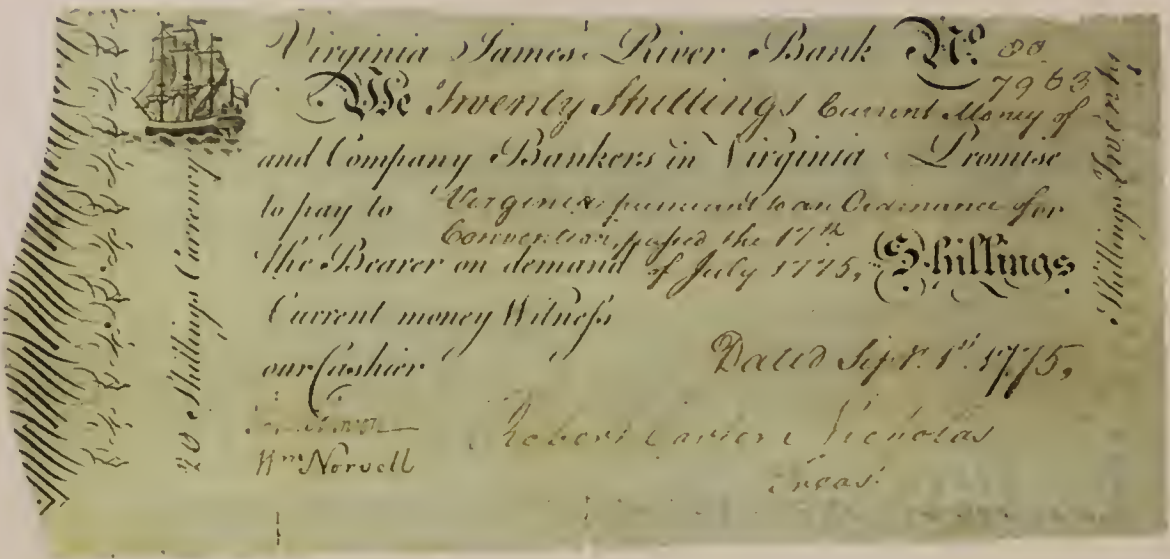 Virginia James River Bank No. 80.
7963
We Twenty Shillings Current Money of
and Company Bankers in Virginia Promise
to pay to Virginia pursuant to an Ordinance of
Convention, passed the 17th
the Bearer on demand of July 1775, Shillings
Current money Witneſs
our Cashier
Dated Sept. 1st. 1775,
Wm Norvell
Robert Carter Nicholas
Treas.
20 Shillings Currency
Shillings Twenty